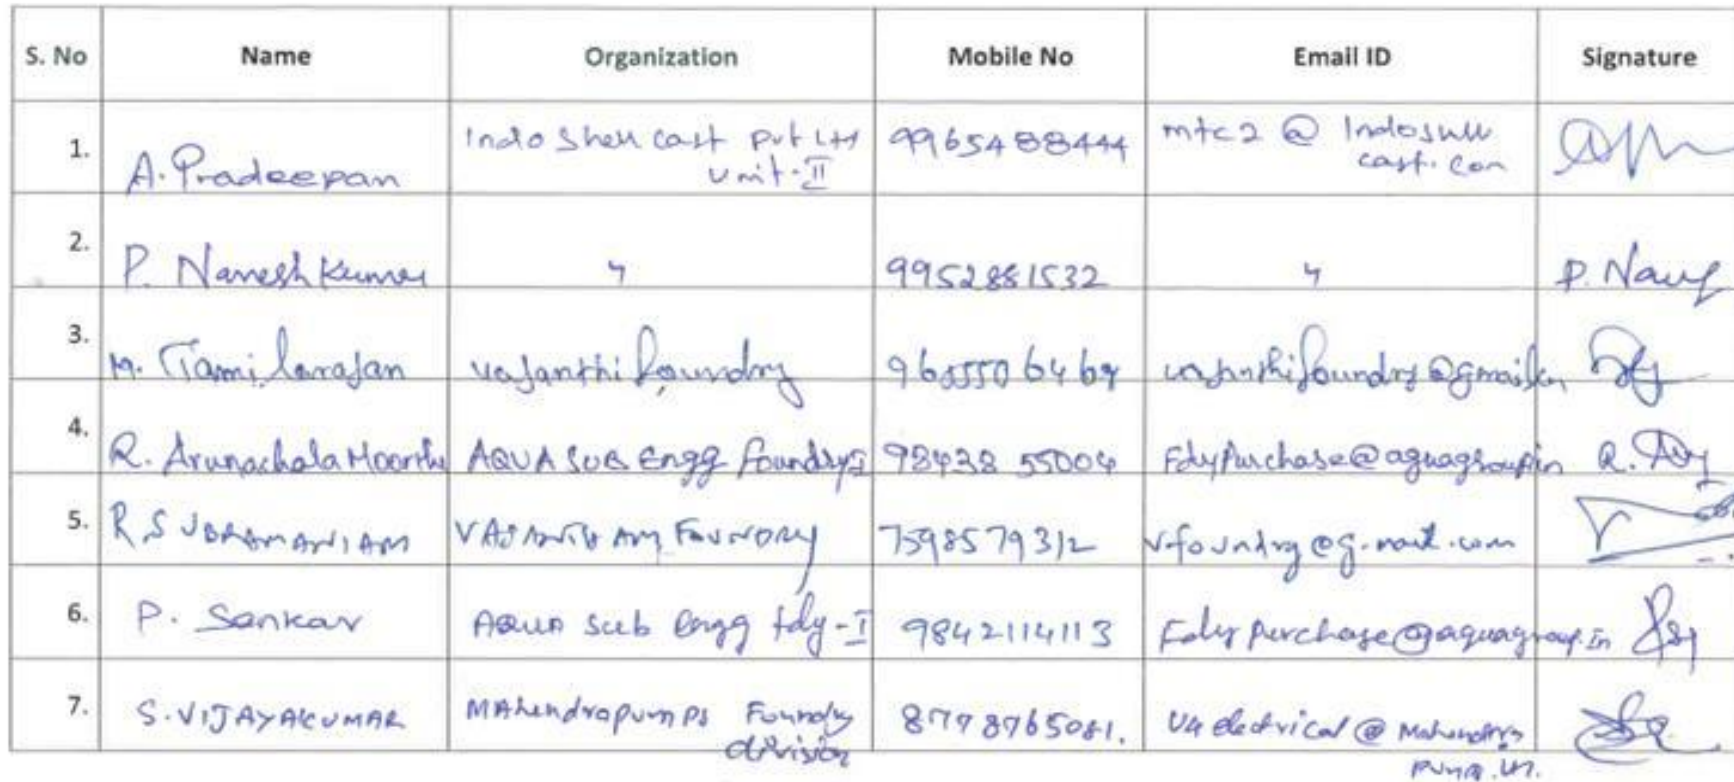 S. No Name Organization Mobile No Email ID Signature
1. A. Pradeepan Indo Shell Cast Pvt Ltd 9965488444 mtc2 @ Indoshell
Unit-II cast.com
2. P. Naresh Kumar 〃 9952881532 〃 P. Nares
3. M. Tamilarasan Vasanthi foundry 9655506469 vasanthifoundry@gmail.com
4. R. Arunachala Moorthy AQUA SUB Engg foundry-I 98438 55004 Fdypurchase@aquagroup.in
5. R SUBRAMANIAM FOUNDRY 7598579312 vfoundry@g.mail.com
6. P. Sankar AQUA Sub Engg fdy-I 9842114113 Fdypurchase@aquagroup.in
7. S. VIJAYAKUMAR MAhendrapumps Foundry 8778765081. U4 electrical @ Mahendra
division